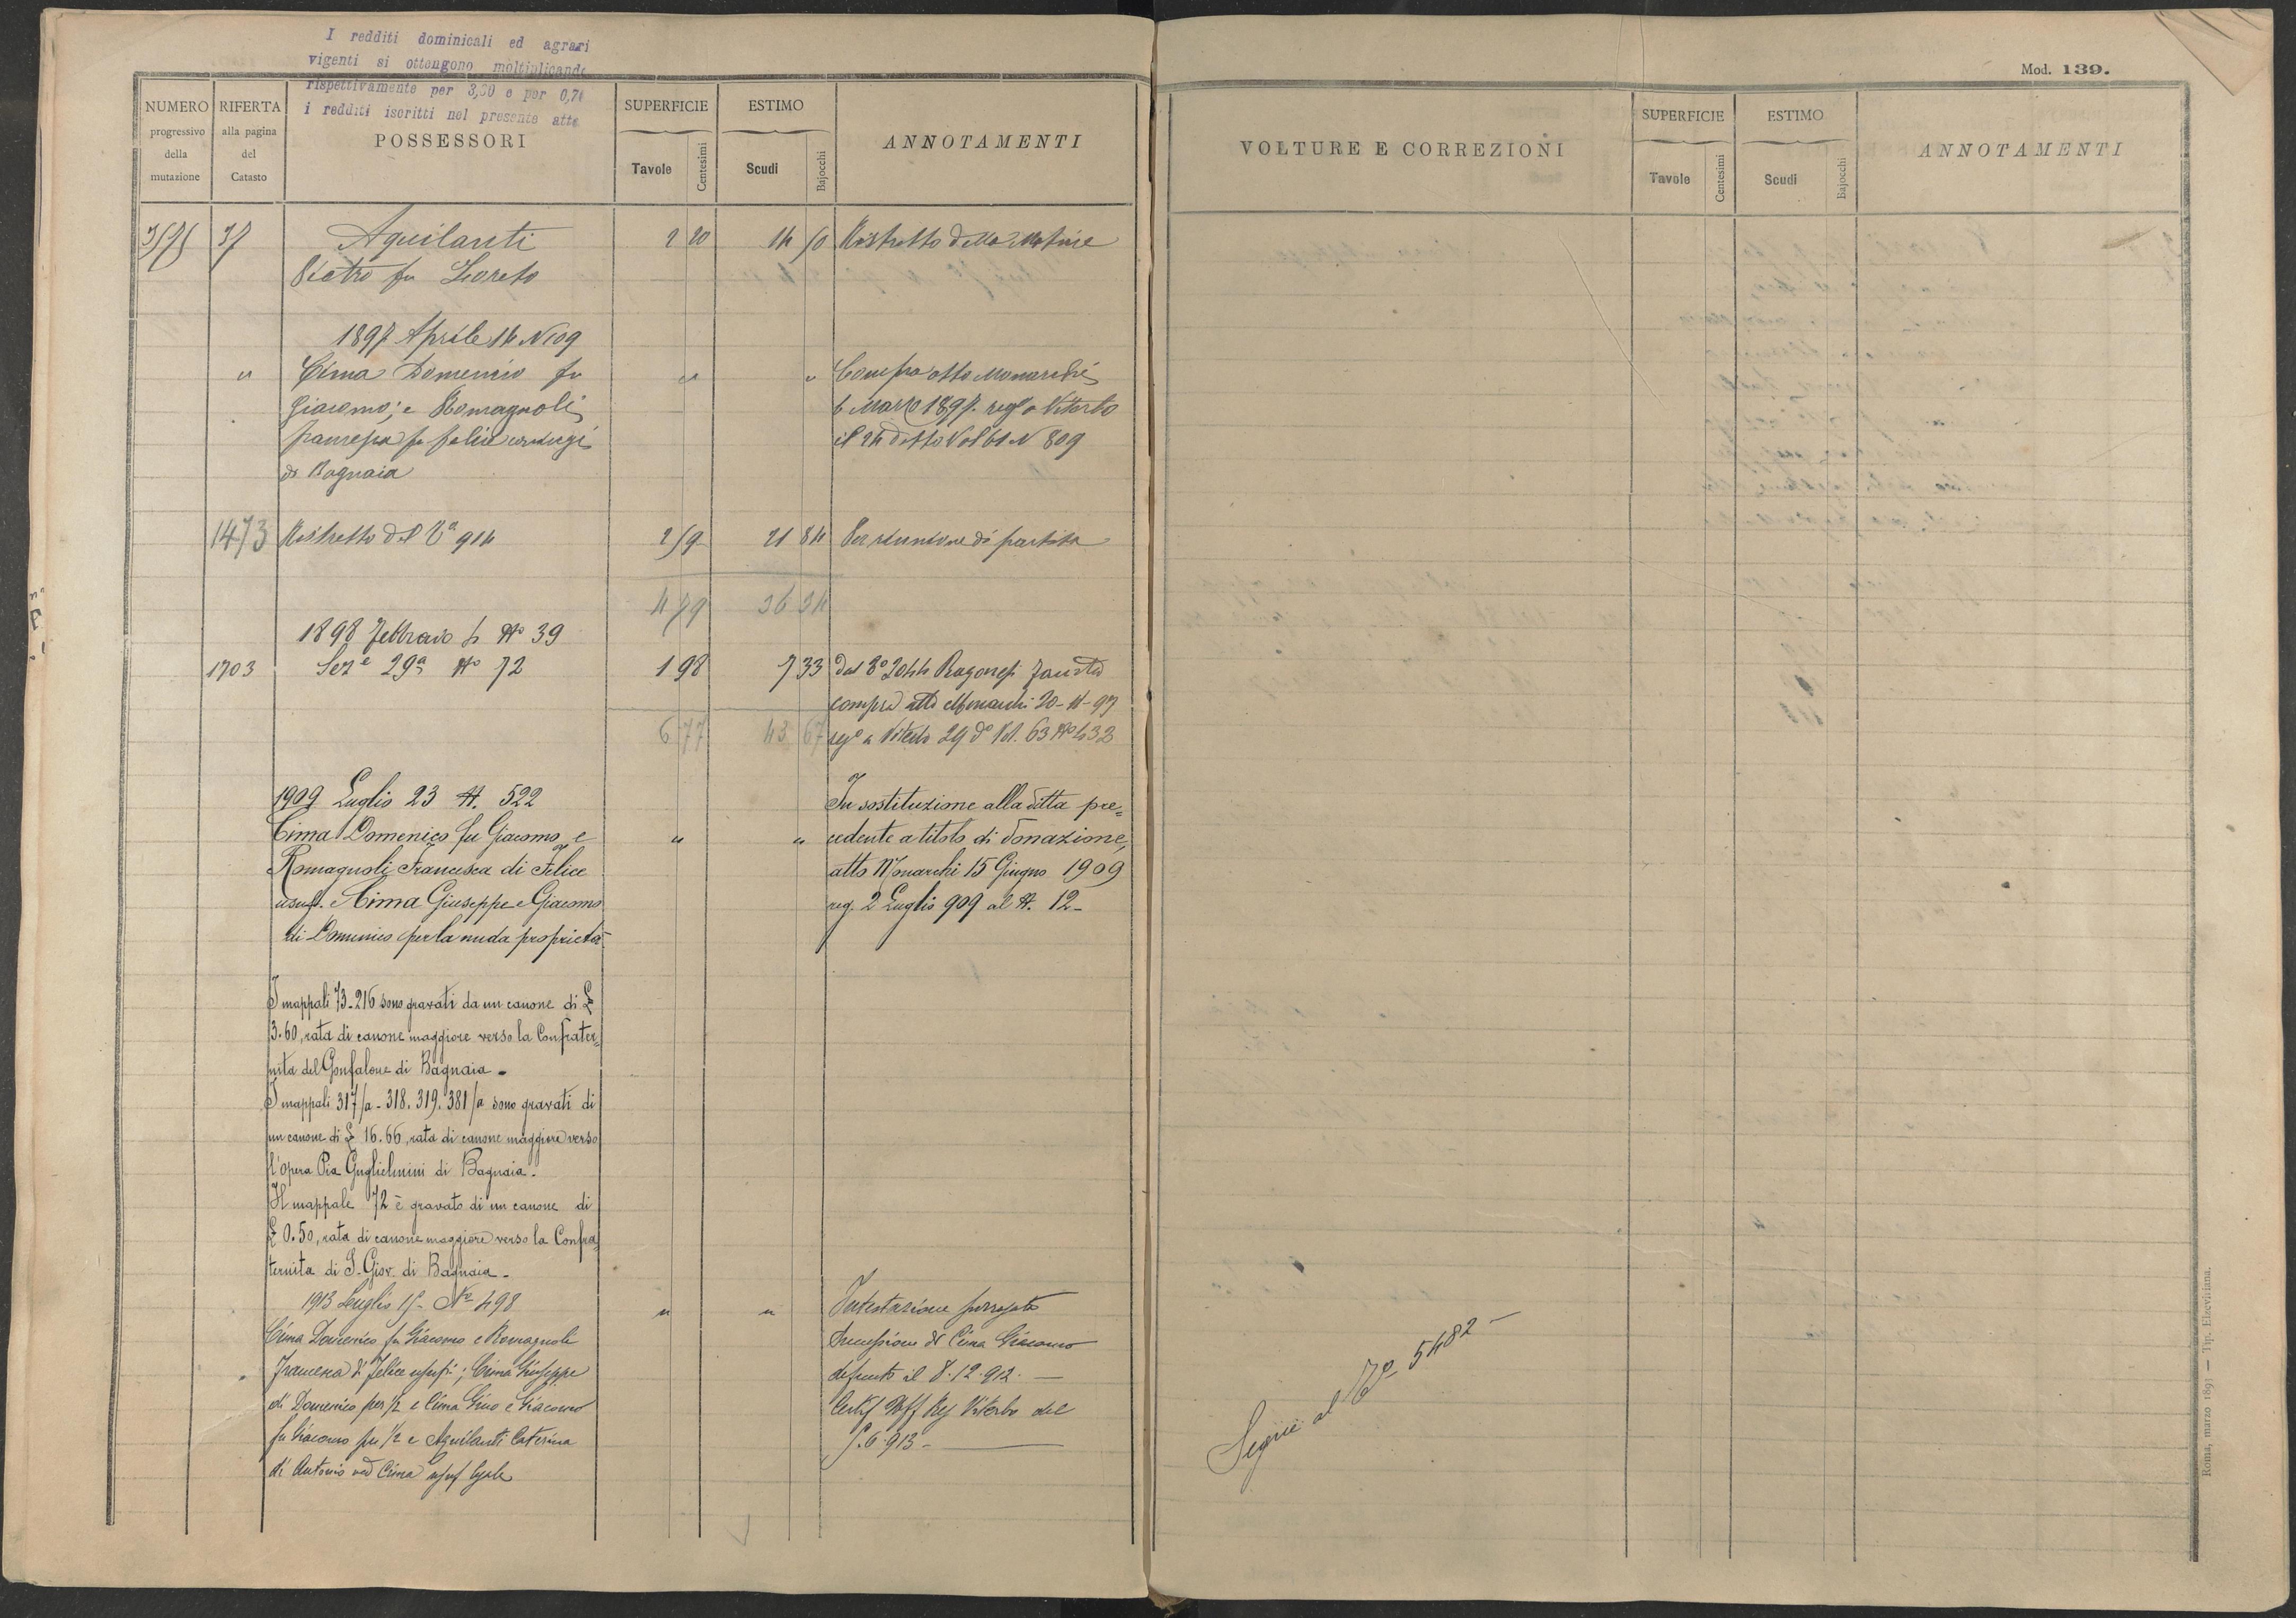 I redditi dominicali ed agrari
vigenti si ottengono moltiplicando
rispettivamente per 3,30 e per 0,74
i redditi iscritti nel presente atto
Mod. 139.
NUMERO progressivo della mutazione
RIFERTA alla pagina del Catasto
POSSESSORI
SUPERFICIE
Tavole Centesimi
ESTIMO
Scudi Bajocchi
ANNOTAMENTI
VOLTURE E CORREZIONI
SUPERFICIE
Tavole Centesimi
ESTIMO
Scudi Bajocchi
ANNOTAMENTI
Aquilanti 2 20 14 50 Ristretto della Matrice
Pietro fu Loreto
1897 Aprile 14 N 109
" Cima Domenico fu " " Compra atto Monarchi
Giacomo; e Romagnoli 6 Marzo 1897. reg° a Viterbo
Francesca fu Felice coniugi il 24 detto Vol 61 N 809
di Bagnaia
1473 Ristretto del 914 2 59 21 84 Per riunione di partita
4 79 36 34
1898 Febbraio N° 39
1703 Sez e 29a N° 72 1 98 7 33 dal 2044 Ragonesi Fausto
compra atto Monarchi 20-11-97
6 77 43 67 reg° a Viterbo 29 d° Vol. 63 N° 432
1909 Luglio 23 N. 522 In sostituzione alla ditta pre=
Cima Domenico fu Giacomo e " " cedente a titolo di donazione,
Romagnoli Francesca di Felice atto Monarchi 15 Giugno 1909
usuf. e Cima Giuseppe e Giacomo reg. 2 Luglio 909 al N. 12-
di Domenico per la nuda proprietà
I mappali 73-216 sono gravati da un canone di £
3.60, rata di canone maggiore verso la Confrater=
nita del Gonfalone di Bagnaia -
I mappali 317/a - 318. 319. 381/a sono gravati di
un canone di £ 16.66, rata di canone maggiore verso
l'opera Pia Guglielmini di Bagnaia.
Il mappale 72 è gravato di un canone di
£ 0.50, rata di canone maggiore verso la Confra=
ternita di S. Giov. di Bagnaia -
1913 Luglio 15 - N° 498 " " Intestazione surrogata
Cima Domenico fu Giacomo e Romagnoli Successione di Cima Giacomo
Francesca di Felice usuf.; Cima Giuseppe defunto il 8.12.912. —
di Domenico per 1/2 e Cima Gino e Giacomo Certif Uff Reg Viterbo del
fu Giacomo per 1/2 e Aquilanti Caterina 5.6.913 —
di Antonio ved Cima usuf legale
Segue al 5482 -
Roma, marzo 1893 — Tip. Elzeviriana.